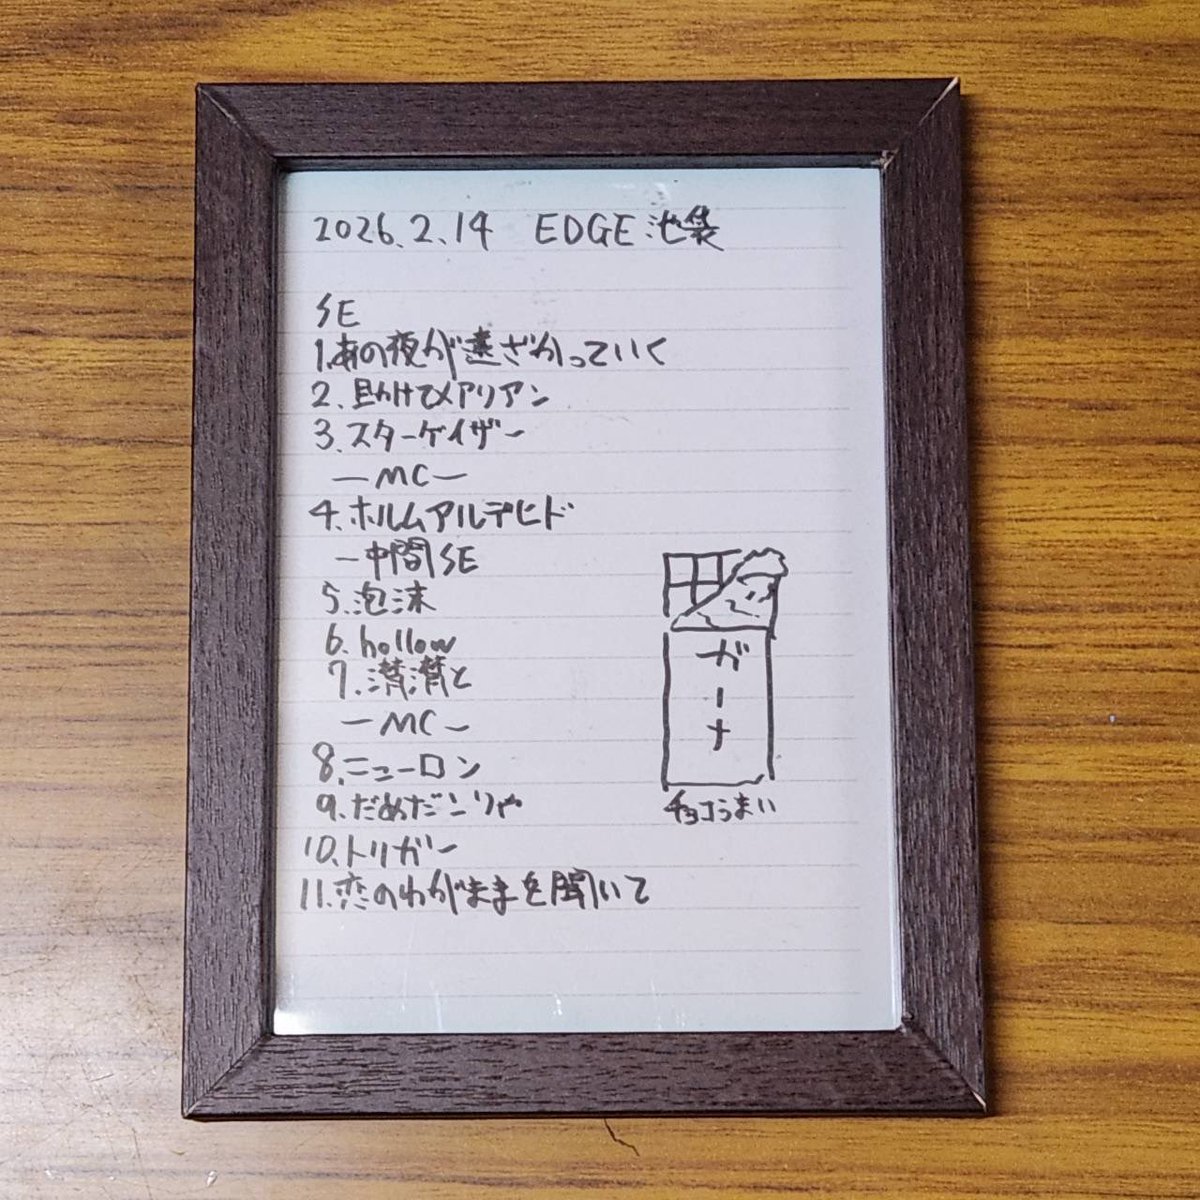 2026.2.14 EDGE池袋
SE
1.あの夜が遠ざかっていく
2.助けてメアリアン
3.スターゲイザー
ーMCー
4.ホルムアルデヒド
ー中間SE
5.泡沫
6.hollow
7.潸潸と
ーMCー
8.ニューロン
9.だめだこりゃ
10.トリガー
11.恋のわがままを聞いて
ガーナ
チョコうまい